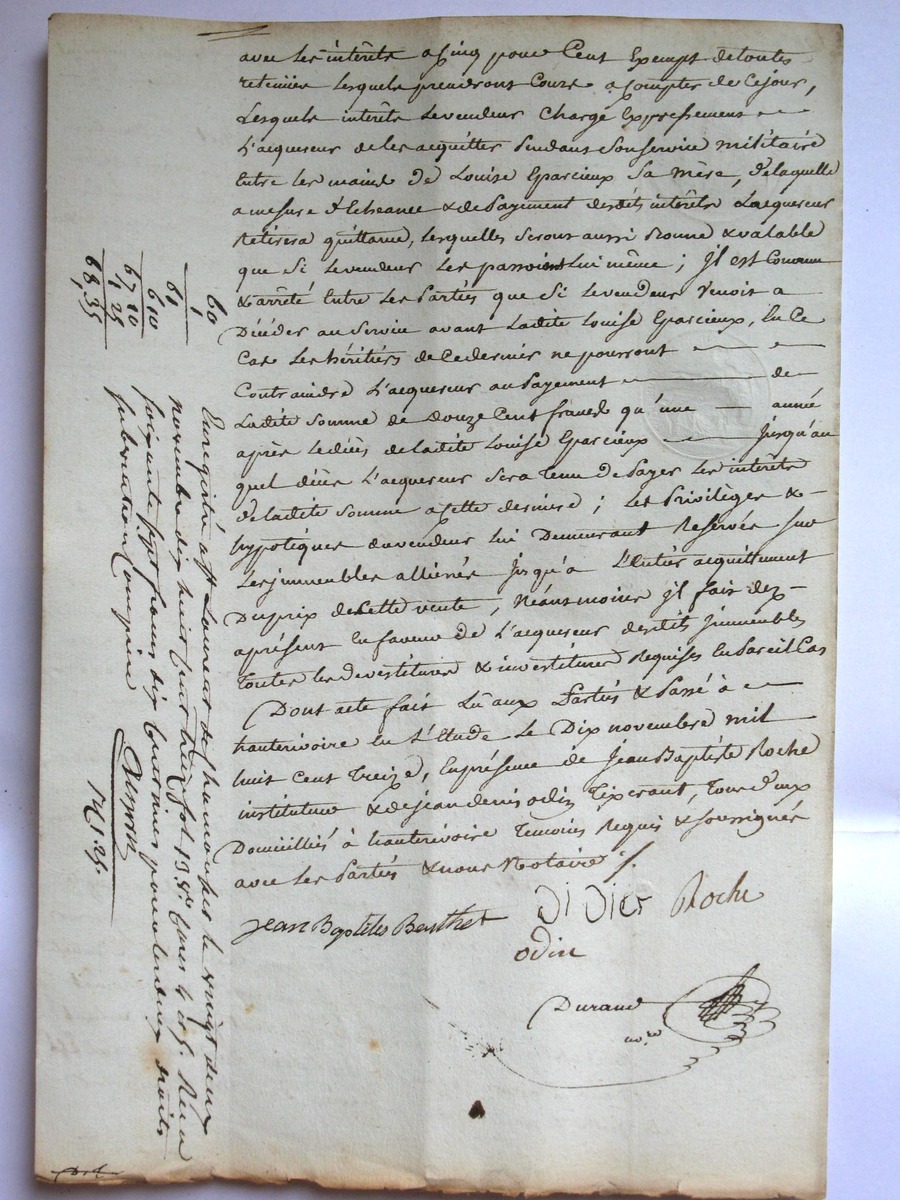 avec les intérêts a Cinq pour Cent Exempt de toutes
retenües lesquels prendront Cours a Compter de Ce jour,
Lesquels intérêts le vendeur Charge Expressement
L'acquereur de les acquitter Pendant Son service militaire
Entre les mains de Louise Eparcieux Sa mère, de laquelle
a mesure d'Echeance & de Payement desdits intérêts Lacquereur
Retirera quittance, lesquelles Seront aussi Bonne & valable
que Si le vendeur les passoient lui même ; Il est Convenu
& arrêté Entre les Parties que Si le vendeur Venoit a
Décéder au Service avant Ladite Louise Eparcieux, En Ce
Cas Les héritiers de Ce dernier ne pourront
Contraindre L'acquereur au Payement de
Ladite Somme de Douze Cent francs qu'une année
après le décès de ladite Louise Eparcieux jusqu'au
quel décès L'acquereur Sera Tenu de Payer les intérêts
de ladite Somme a Cette dernière ; Les Privilèges &
hypoteques du vendeur lui Demeurant Reservés Sur
Les immeubles alliénés jusqu'a L'Entier acquittement
Du prix de Cette vente ; Néansmoins il fait dez-
aprésent En faveur de L'acquereur desdits immeubles
Toutes les devestitures & investitures Requises En Pareil Cas
Dont acte fait Lû aux Parties & Passé à
hauterivoire En L'Etude Le Dix novembre mil
huit Cent Treize, En présence de Jean Baptiste Roche
instituteur & de jean denis odin Tixerant, Tous deux
Domiciliés à hauterivoire Temoins Requis & Soussignés
avec Les Parties & nous Notaire
Jean Baptiste Berthet Didier Roche
odin
Durand
no.re
60
1
61
6 10
67 10
1, 25
68, 35
Enregistré a St Laurent de Chamousset le vingt deux
novembre dix huit cent treize fol. 13 Vo. Cases 4 et 5. Reçu
soixante sept francs dix Centimes pour les deux droits
subvention Comprise
1f. 25.